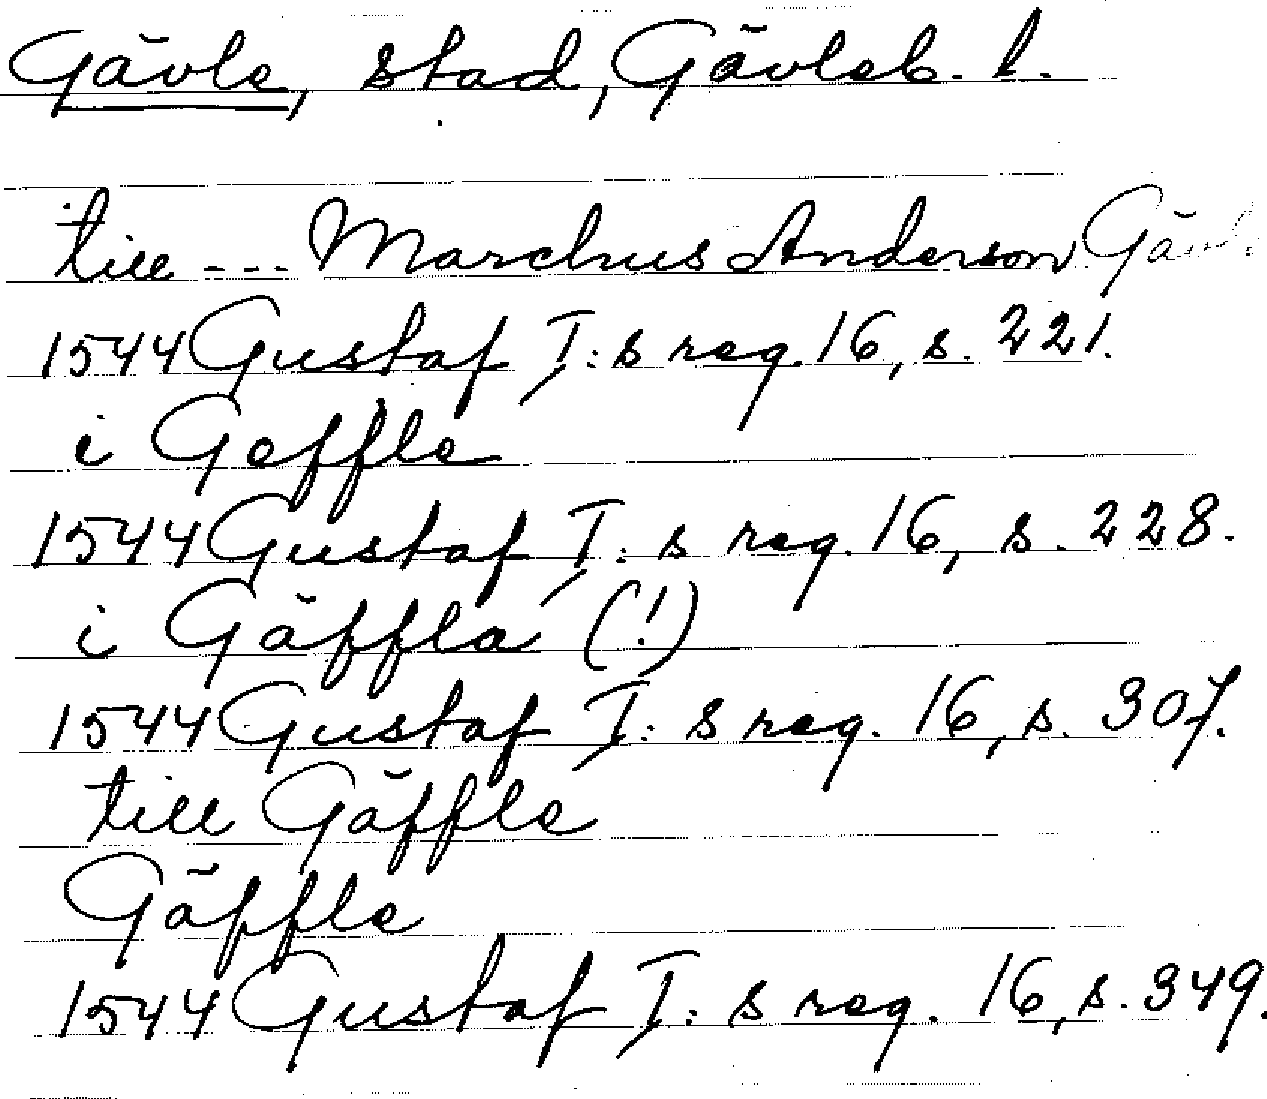 Gävle, stad, Gävleb. l.
till --- Marchus Anderson Gävle
1544 Gustaf I:s reg. 16, s. 221.
i Geffle
1544 Gustaf I:s reg. 16, s. 228.
i Gäffla (!)
1544 Gustaf I:s reg. 16, s. 307.
till Gäffle
Gäffle
1544 Gustaf I:s reg. 16, s. 349.